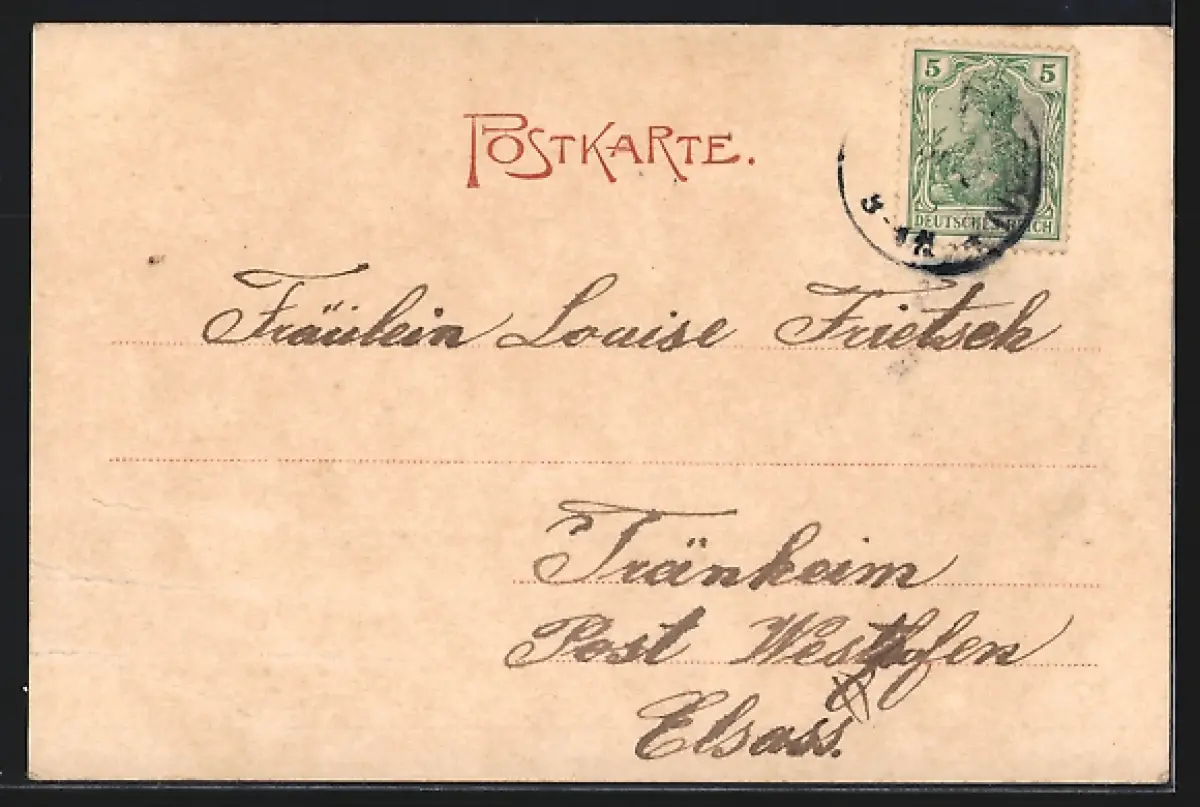 POSTKARTE.
5 5
DEUTSCHES REICH
Fräulein Louise Frietsch
Tränheim
Post Westhofen
Elsass.